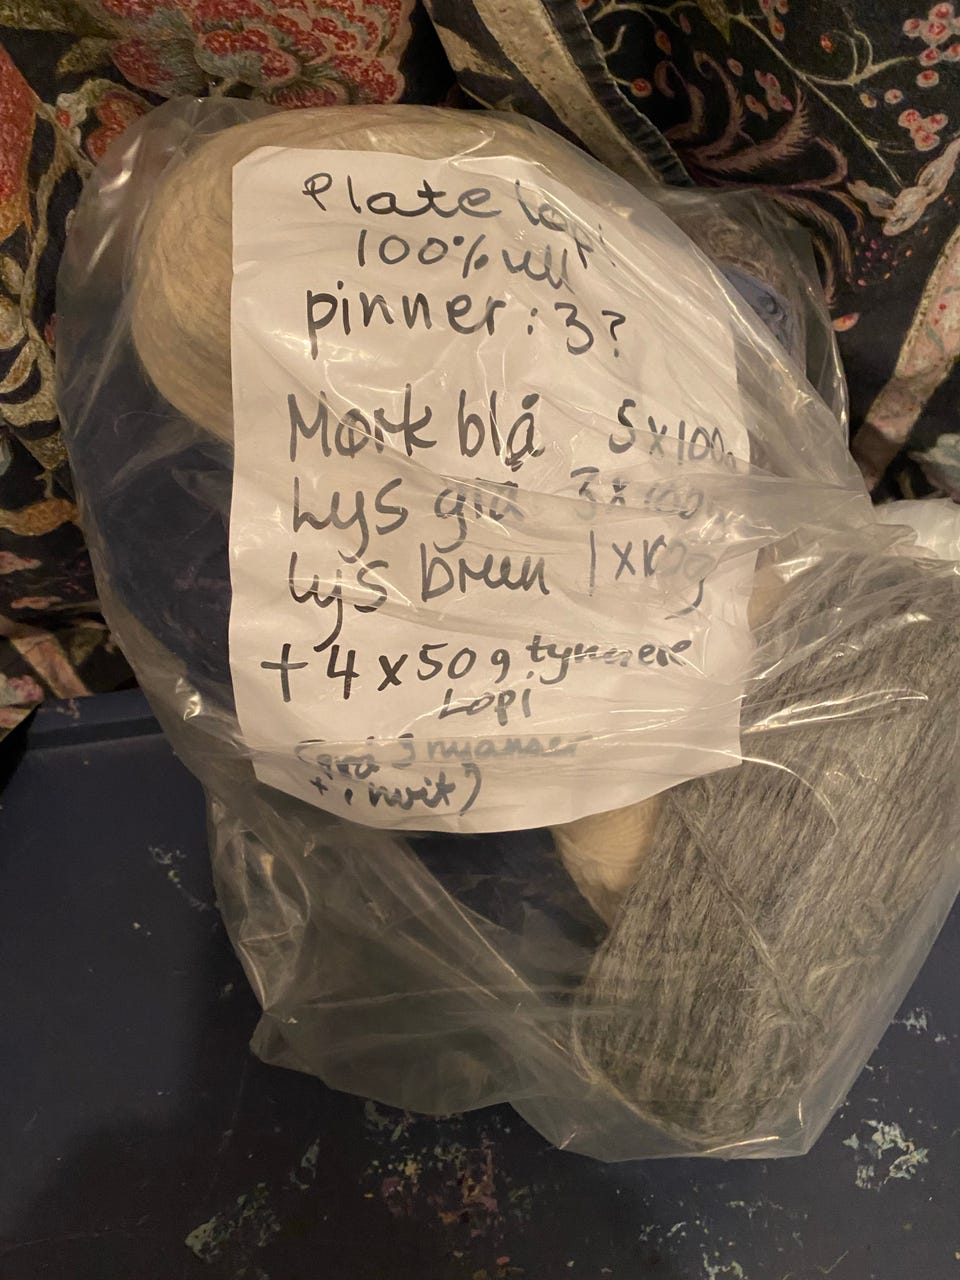 Plate lopi
100% ull
pinner: 3?
Mørk blå 5x100g
Lys grå 3x100g
Lys brun 1x100g
+ 4x50g tynnere
Lopi
(grå 3 nyanser
+ 1 hvit)